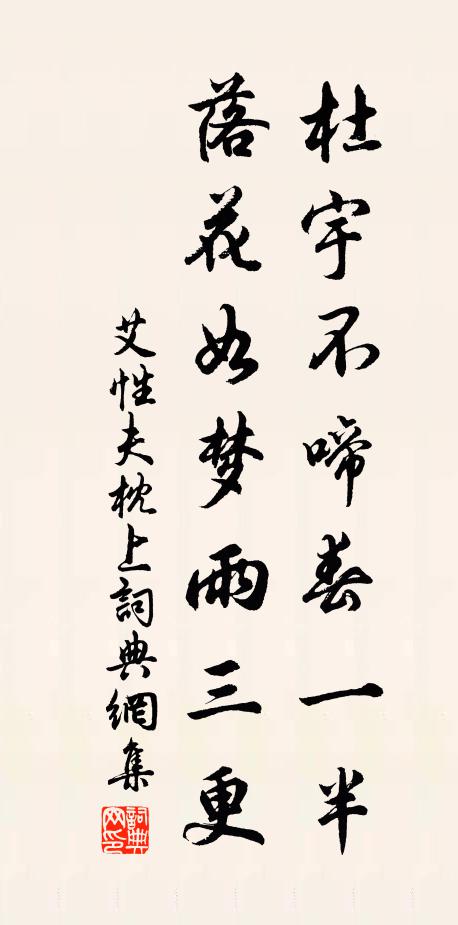 杜宇不啼春一半
落花如梦雨三更
艾性夫枕上詞典網集
詞典网印